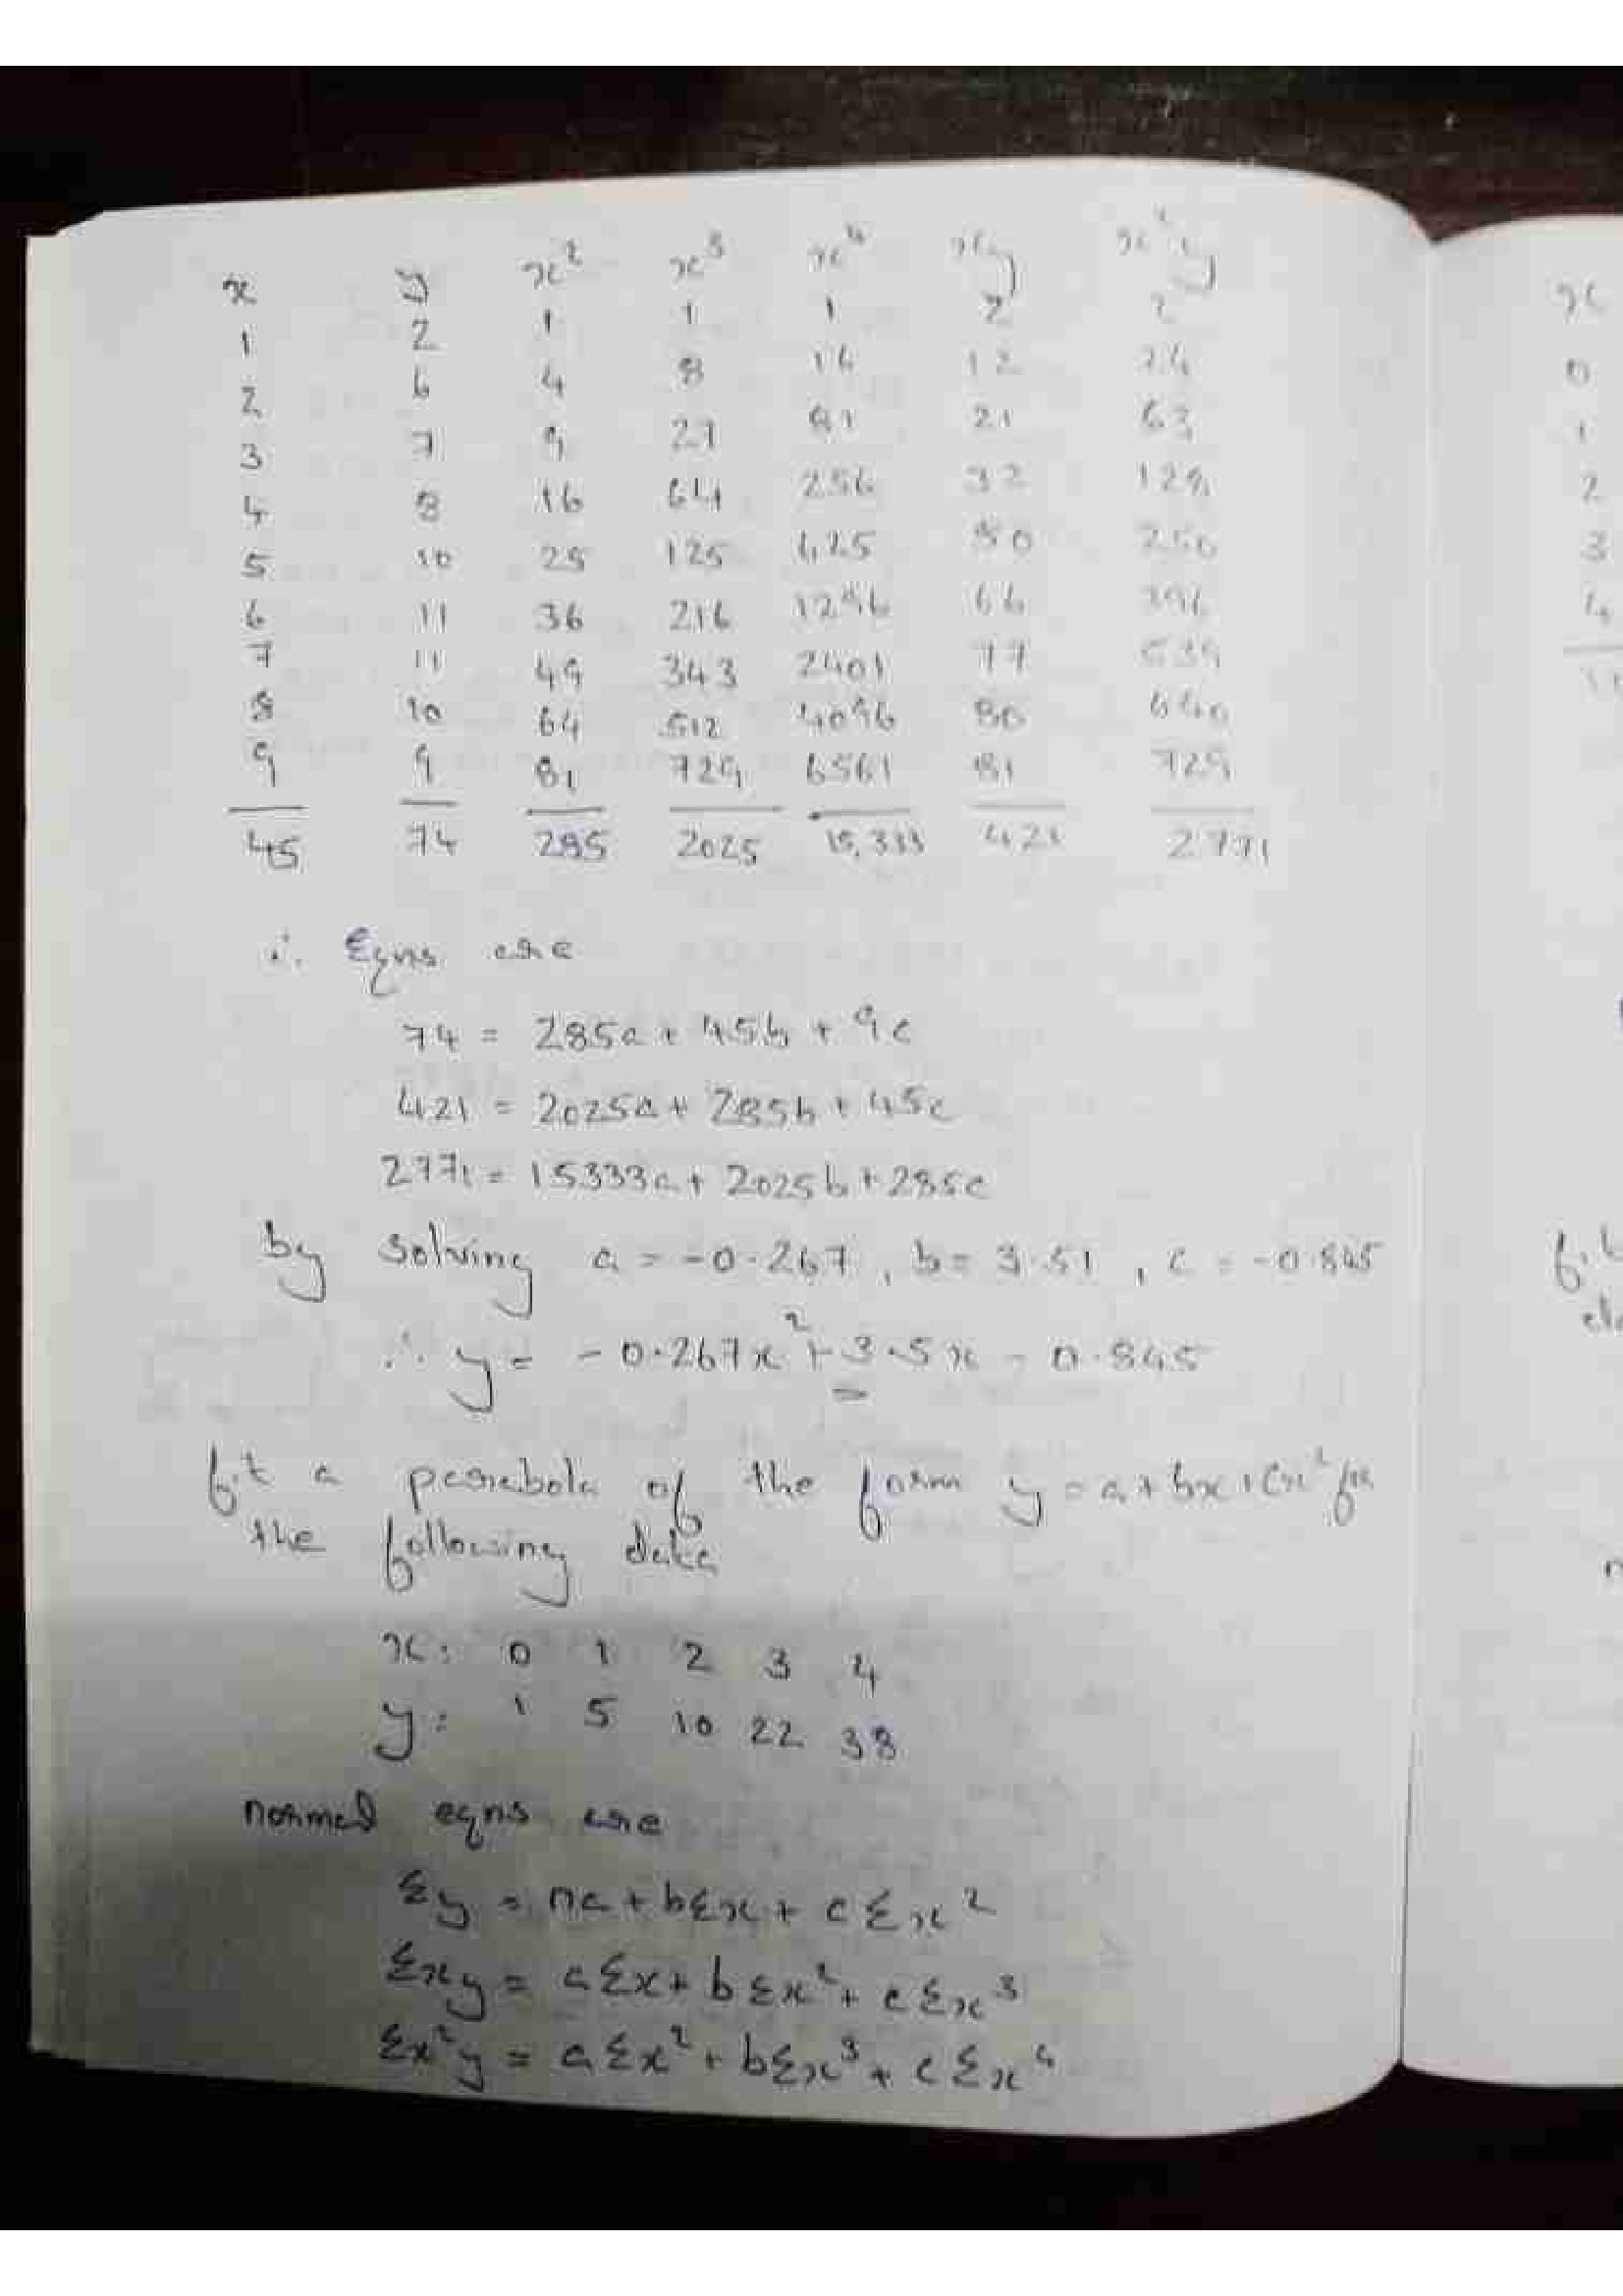 x y x² x³ x⁴ xy x²y
1 2 1 1 1 2 2
2 6 4 8 16 12 24
3 7 9 27 81 21 63
4 8 16 64 256 32 128
5 10 25 125 625 50 250
6 11 36 216 1296 66 396
7 11 49 343 2401 77 539
8 10 64 512 4096 80 640
9 9 81 729 6561 81 729
45 74 285 2025 15,333 421 2771
∴ Eqns are
74 = 285a + 45b + 9c
421 = 2025a + 285b + 45c
2771 = 15333a + 2025b + 285c
by solving a = -0.267, b = 3.51, c = -0.845
∴ y = -0.267x² + 3.5x - 0.845
fit a parabola of the form y = a + bx + cx² for
the following data
x: 0 1 2 3 4
y: 1 5 10 22 38
normal eqns are
Σy = na + bΣx + cΣx²
Σxy = aΣx + bΣx² + cΣx³
Σx²y = aΣx² + bΣx³ + cΣx⁴
x
0
1
2
3
4